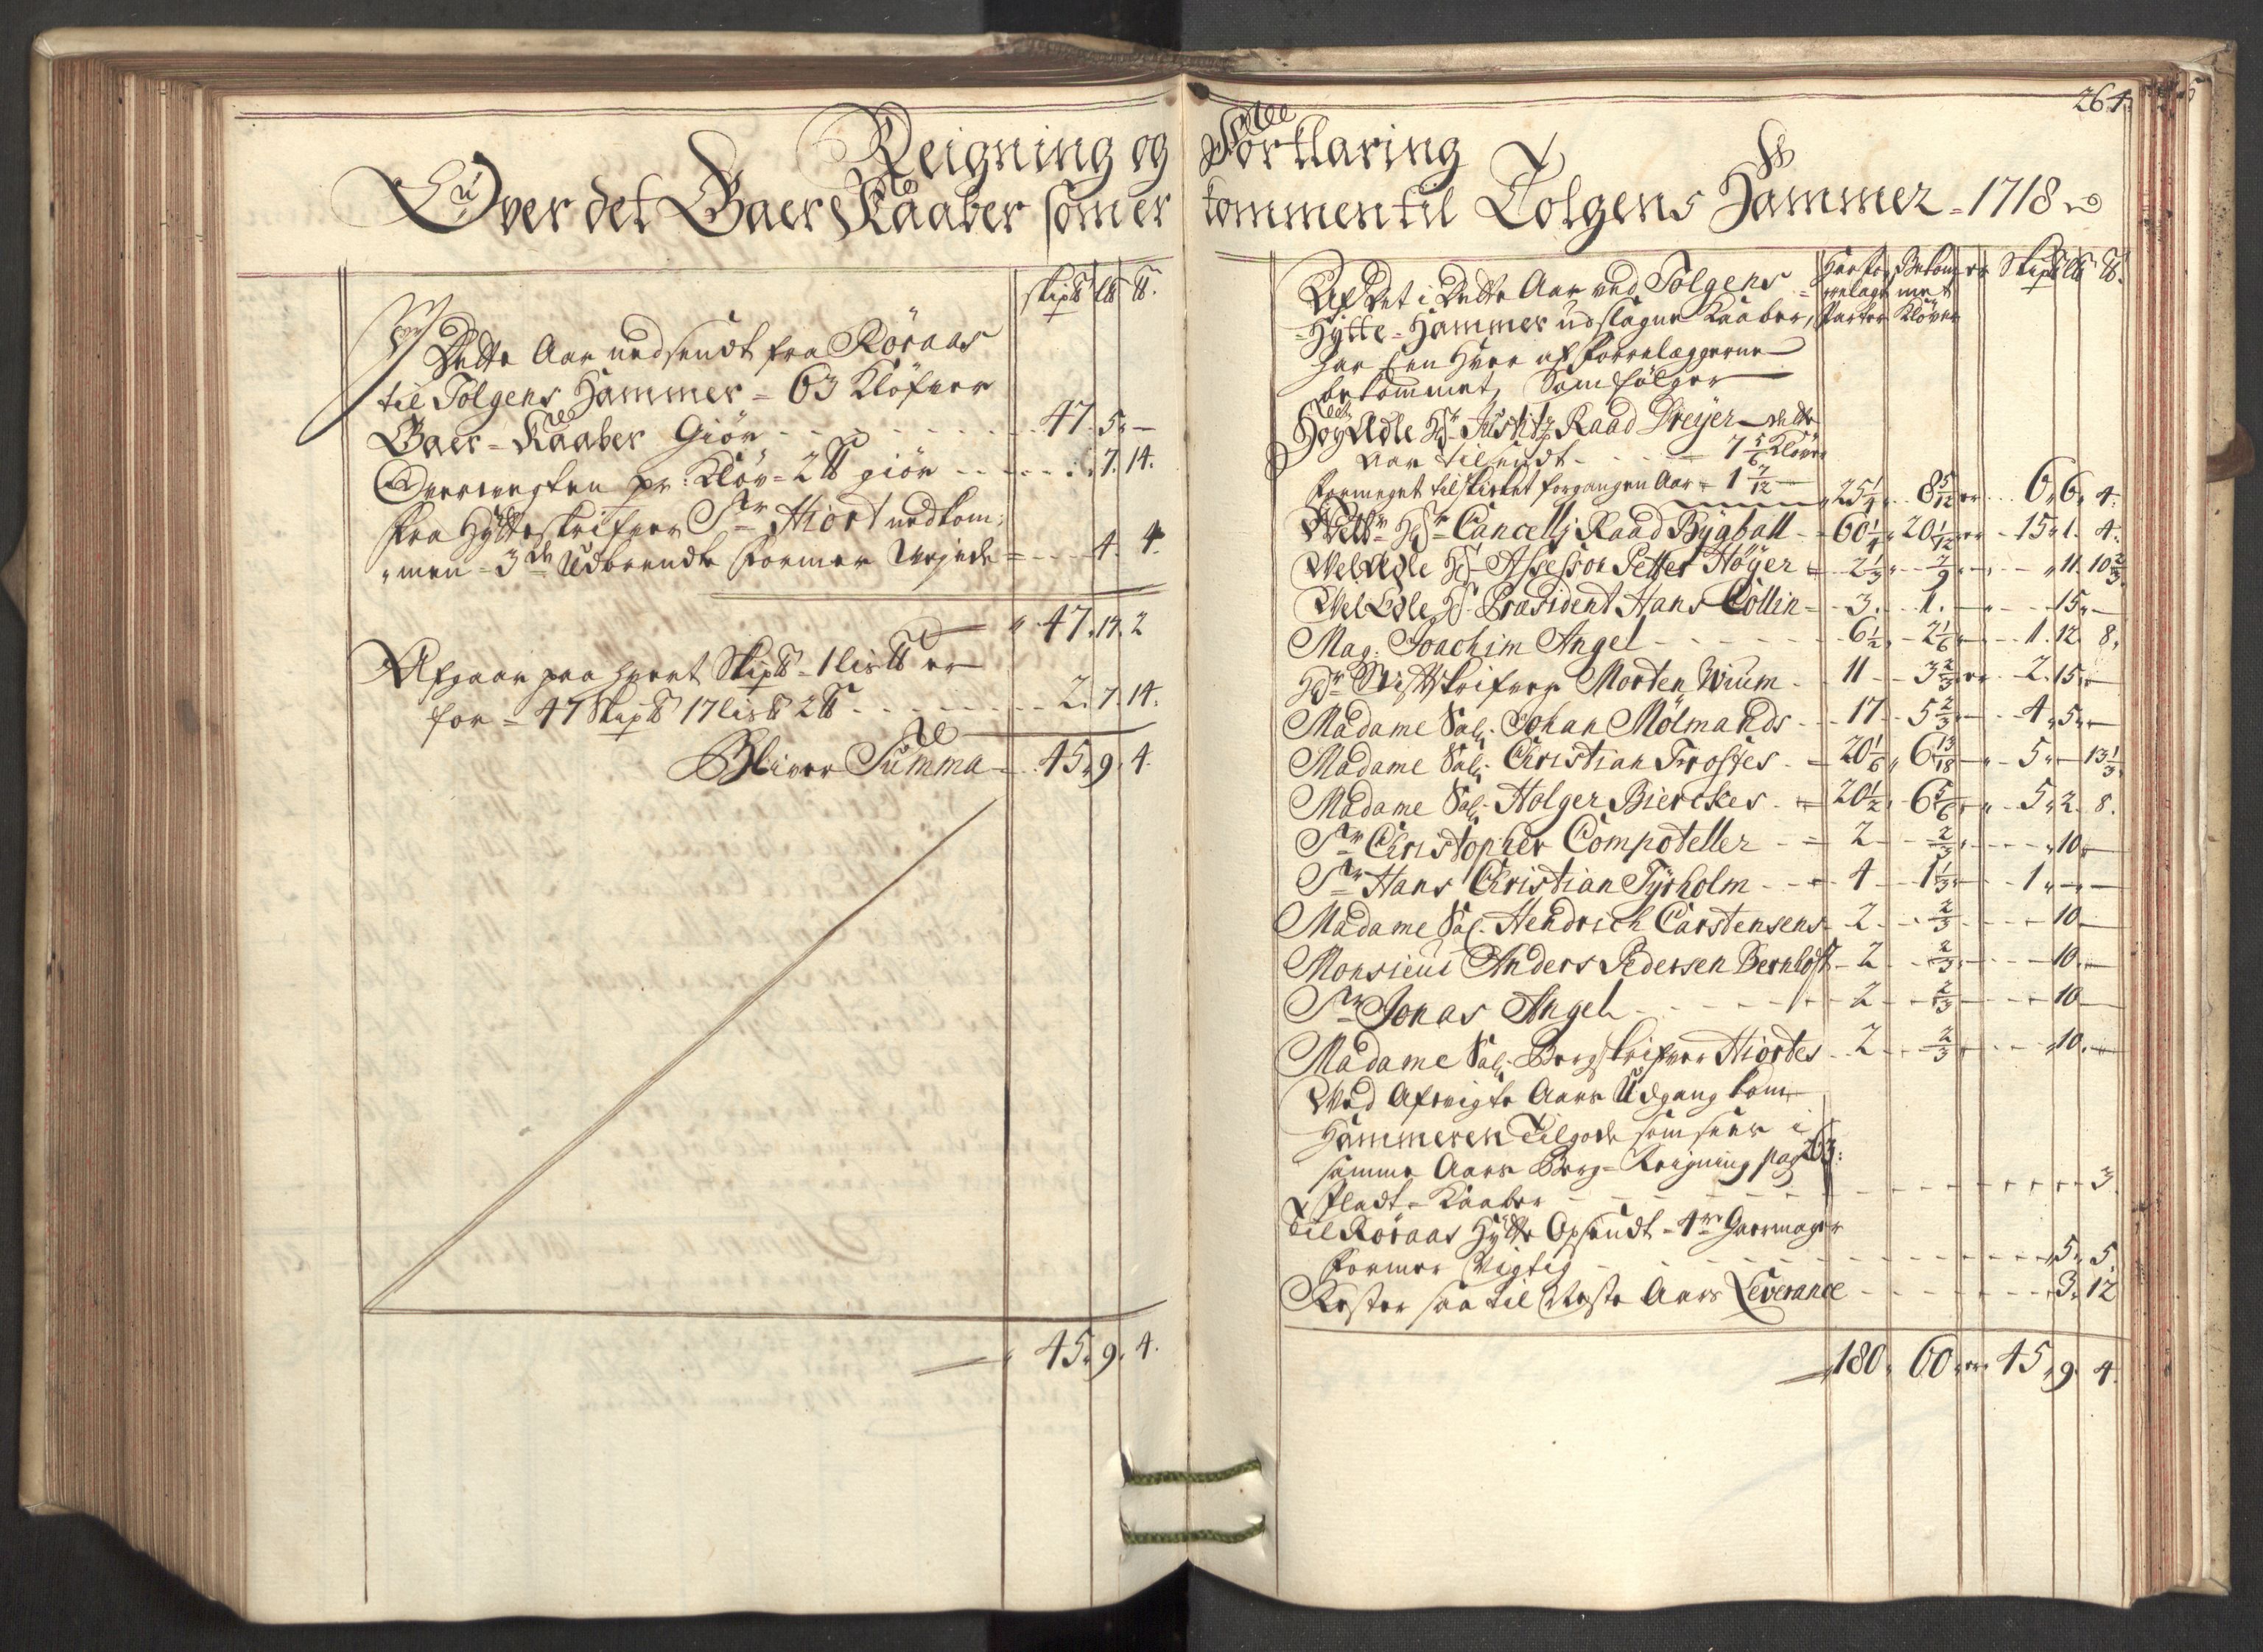 Reigning og
Over det Gaer Kaaber som er
skip℔ l℔ ℔.
Dette Aar nedsendt fra Röraas
til Tolgens Hammer = 63 Klöfver
Gaer = Kaaber Giör - - - 47. 5. —
Overvegten pr: Klöv = 2 ℔ giör - - - 7. 14.
Fra Hytteskrifver Sr Hiort nedkom:
men = 3de Udbrendte Former Veyede = - - 4. 4.
47. 17. 2
Afgaar paa hvert Skip℔ = 1 lis℔ er
for = 47 Skip℔ 17 lis℔ 2 ℔ - - - 2. 7. 14.
Bliver Summa - 45. 9. 4.
45. 9. 4.
264.
Forklaring
kommen til Tolgens Hammer = 1718
Af Det i Dette Aar ved Tolgens =
Hytte = Hammer udslagne Kaaber,
har Een Hver af Participanterne
bekommet, Som fölger
Parter Klöver Skip℔ l℔ ℔.
HöyÆdle Hr Justitz Raad Dreyer - dette
Aar tilsendt - - - 7 5/6 Klöver
Formeget tilskicket forgangen Aar = 1 7/12
25 1/4 8 5/12 6. 6. 4.
Hr Cancellj Raad Bÿgball - - 60 1/4 20 1/12 15. 1. 4.
WelÆdle Hr Assessor Petter Höÿer = 2 1/3 7/9 11. 10 2/3
WelEdle Hr Præsident Hans Collin - 3. 1. — 15. —
Mag: Joachim Angel - - - 6 1/2 2 1/6 1. 12. 8.
Hr Stiftskrifver Morten Wium - 11 3 2/3 2. 15. —
Madame Sal: Johan Mölmands - - 17 5 2/3 4. 5. —
Madame Sal: Christian Frostes - = 20 1/6 6 13/18 5. — 13 1/3
Madame Sal: Holger Bierckes - = 20 1/2 6 5/6 5. 2. 8.
Sr Christopher Compoteller - = 2 2/3 10. —
Sr Hans Christian Tÿrholm - - 4 1 1/3 1. — —
Madame Sal: Hendrich Carstensens - 2 2/3 10. —
Monsieur Anders Pedersen Bernhoft - 2 2/3 10. —
Sr Jonas Angel - - - 2 2/3 10. —
Madame Sal: Bergskrifver Hiortes - 2 2/3 10. —
Ved Afvigte Aars Udgang kom
Hammeren Tilgode som sees i
samme Aars Berg = Reigning pag 263:
Pladt = Kaaber - - - 3.
Til Röraas Hytte Opsendt = 4re Gaermager
Former Vigtig - - - 5. 5.
Rester saa til Neste Aars Leverance - - - 3. 12
180. 60. 45. 9. 4.